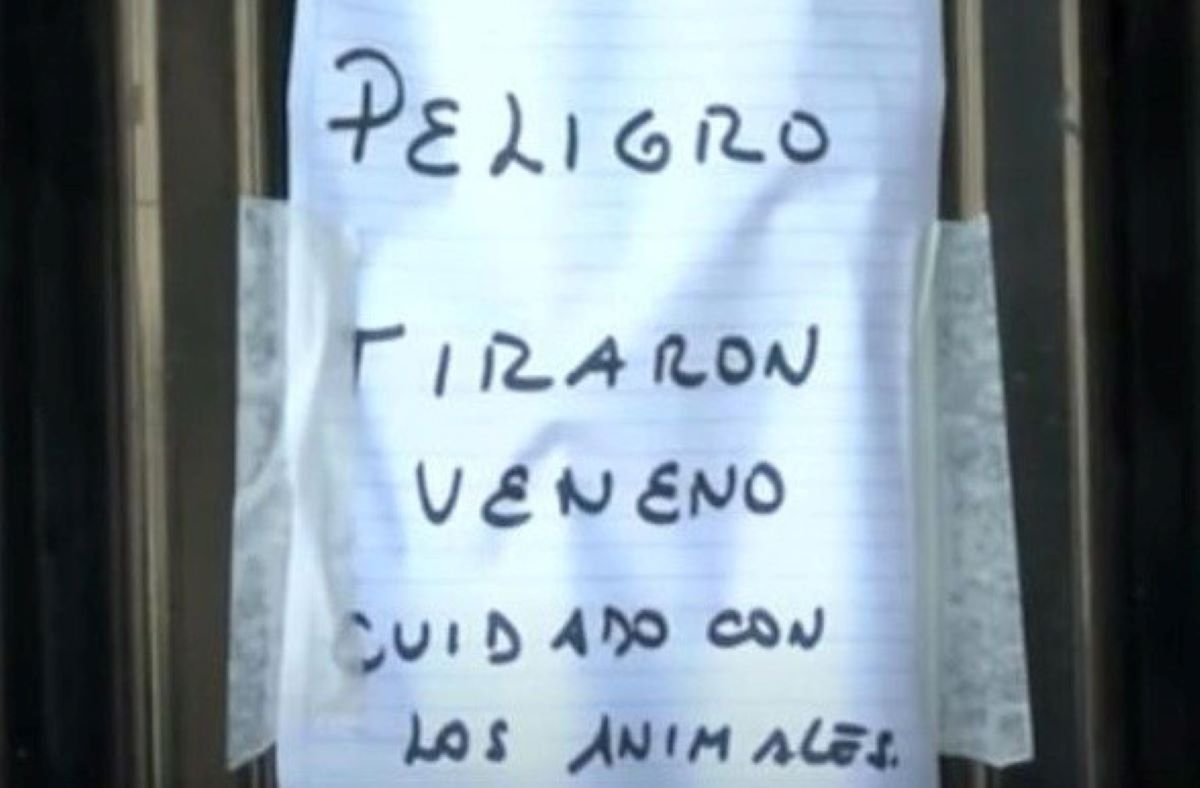 PELIGRO
TIRARON
VENENO
CUIDADO CON
LOS ANIMALES.